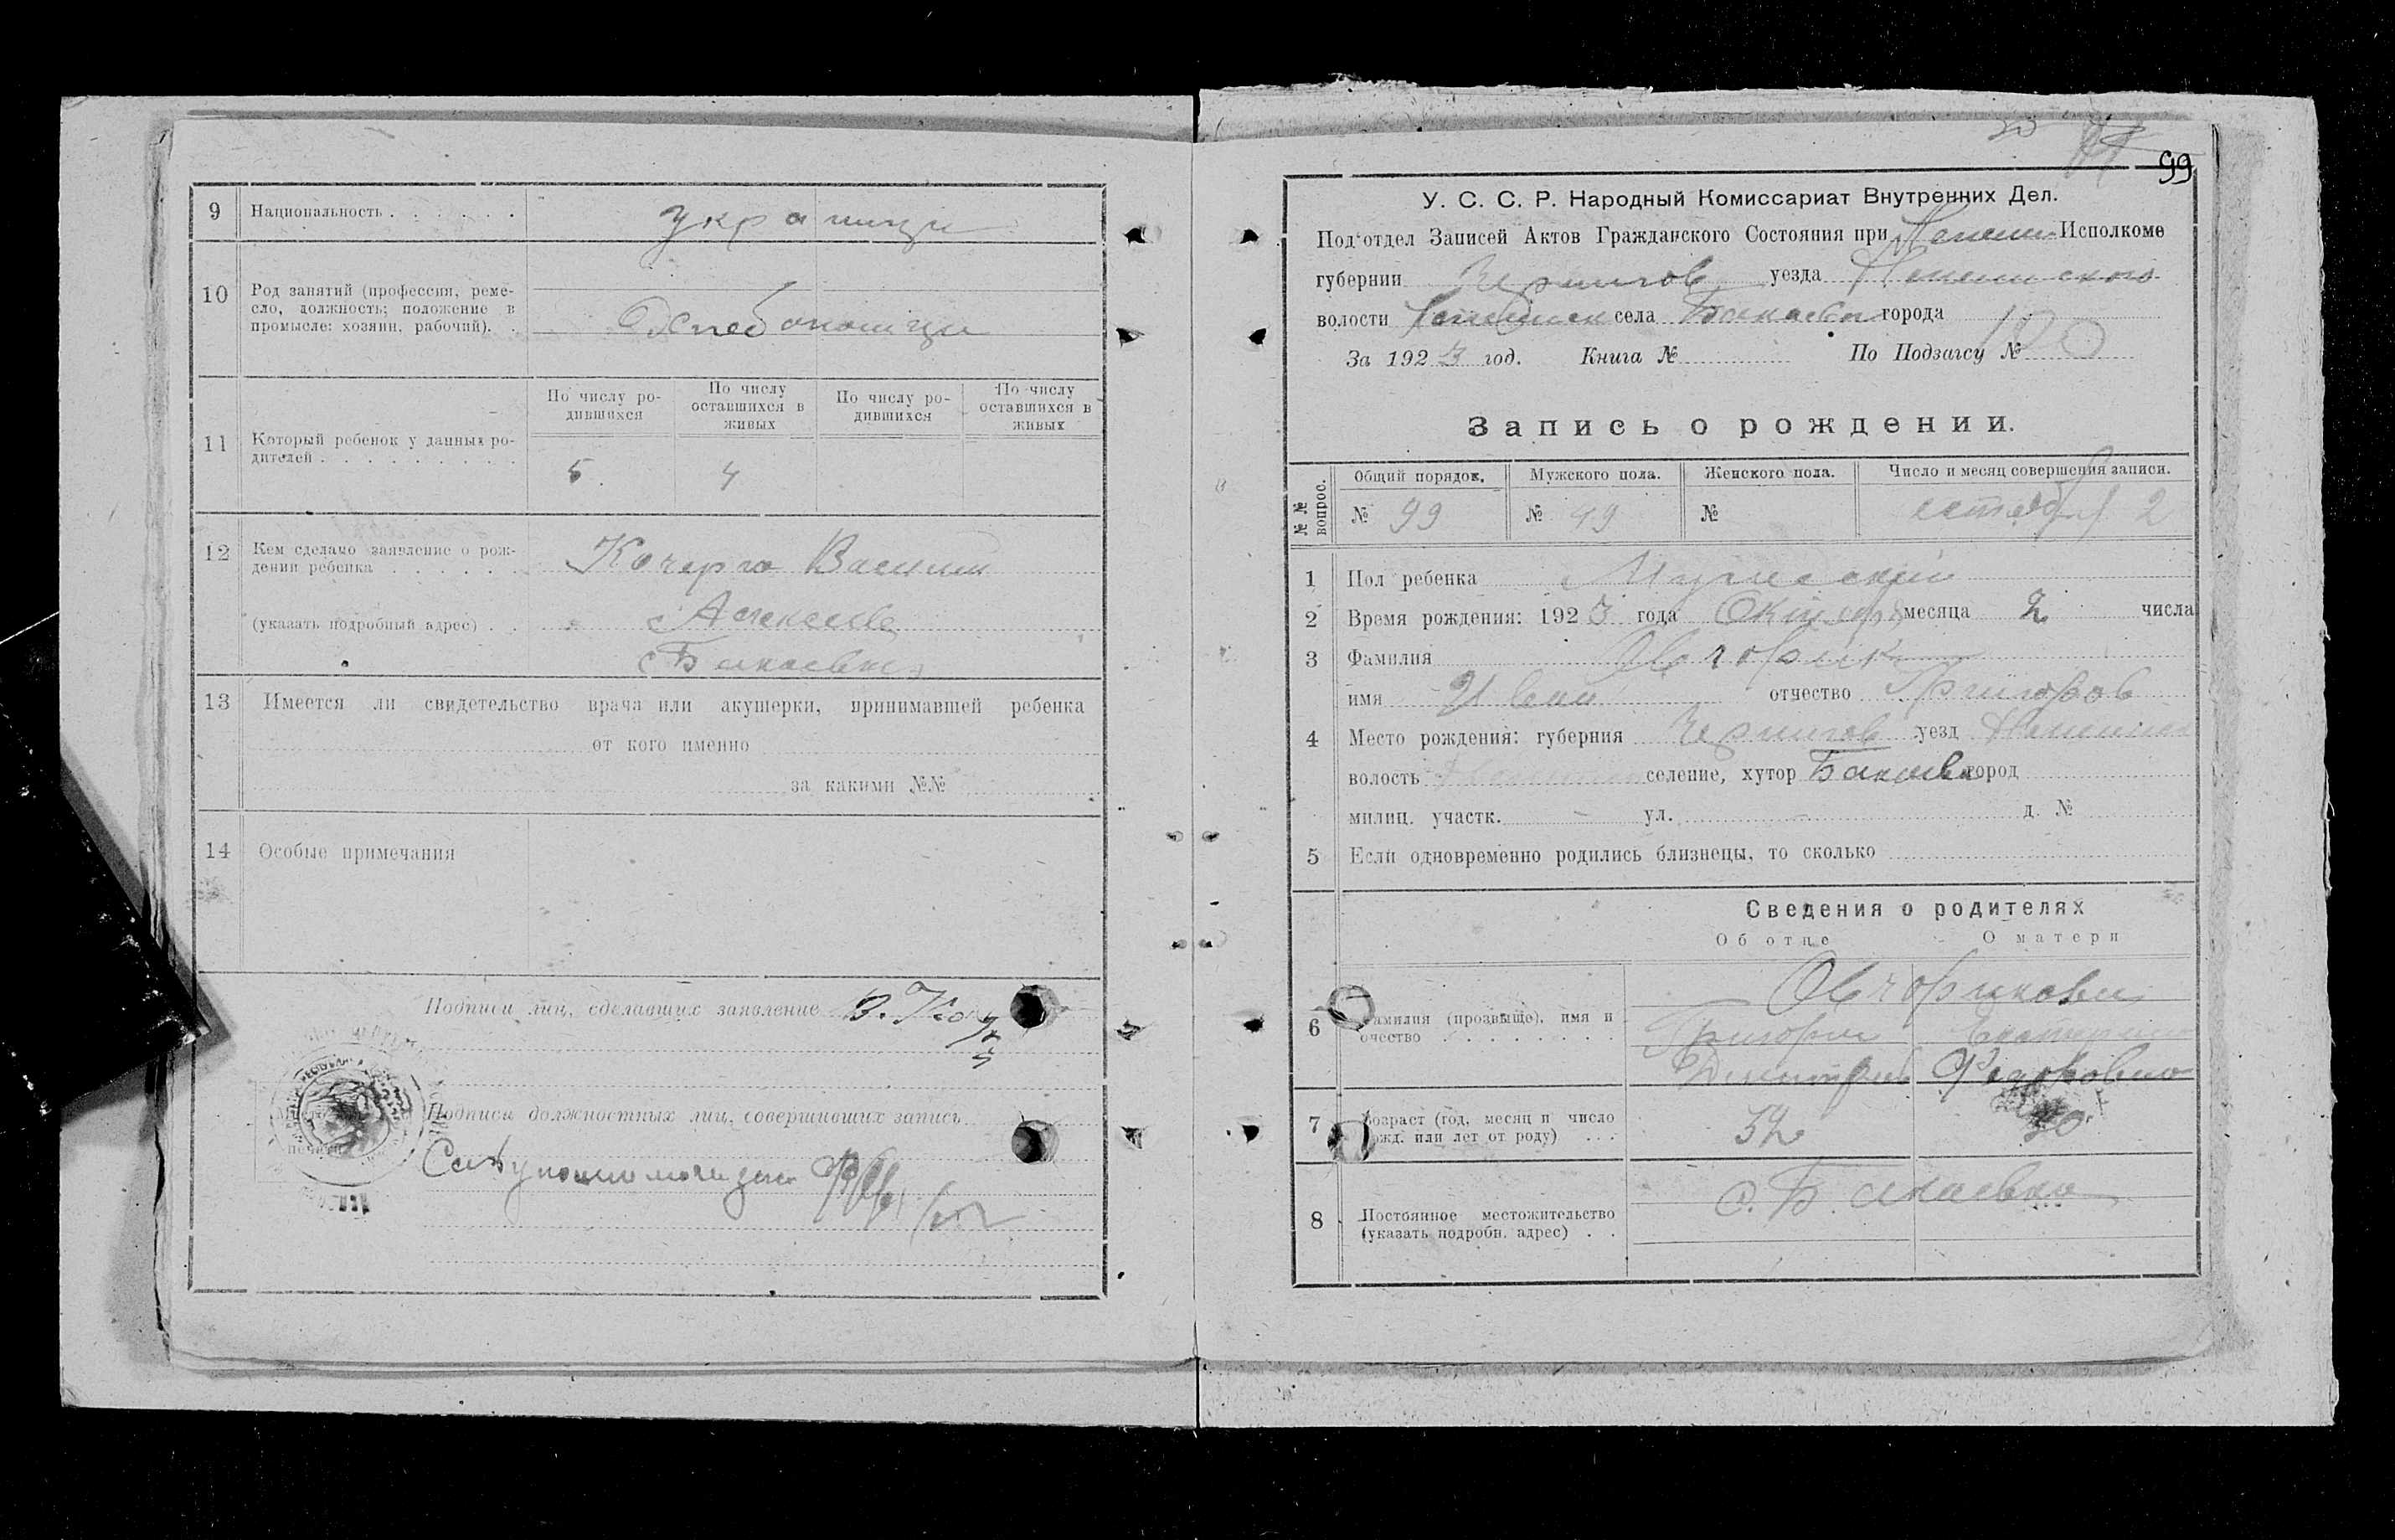 9 Национальность . . . . . . украинци
10 Род занятий (профессия, реме-
сло, должность; положение в
промысле: хозяин, рабочий). . Хлебопашци
По числу ро-
дившихся
По числу
оставшихся в
живых
По числу ро-
дившихся
По числу
оставшихся в
живых
11 Который ребенок у данных ро-
дителей . . . . . . . . . 5. 4
12 Кем сделано заявление о рож-
дении ребенка . . . . . . Кочерга Васили
(указать подробный адрес) . . Алексеев
с Бакаевка
13 Имеется ли свидетельство врача или акушерки, принимавшей ребенка
от кого именно
за какими №№
14 Особые примечания
Подписи лиц, сделавших заявление В. Коч
Подписи должностных лиц, совершивших запись
99
У. С. С. Р. Народный Комиссариат Внутренних Дел.
Под'отдел Записей Актов Гражданского Состояния при Исполкоме
губернии Чернигов уезда
волости села Бакаевки города
За 1923 год. Книга № По Подзагсу № 100
Запись о рождении.
№ № вопрос.
Общий порядок. Мужского пола. Женского пола. Число и месяц совершения записи.
№ 99 № 49 № 2
1 Пол ребенка Мужеский
2 Время рождения: 1923 года Октябр месяца 2 числа
3 Фамилия Овчорик
имя Иван отчество Григоров
4 Место рождения: губерния Чернигов уезд
волость селение, хутор Бакаевка город
милиц. участк. - ул. - д. №
5 Если одновременно родились близнецы, то сколько
Сведения о родителях
Об отце О матери
Овчорикови
6 Фамилия (прозвище), имя и
очество . . . . . . . . Григори Екатерина
Дмитриев
7 Возраст (год, месяц и число
рожд. или лет от роду) . . . 32 30
8 Постоянное местожительство
(указать подробн. адрес) . . с. Бакаевка